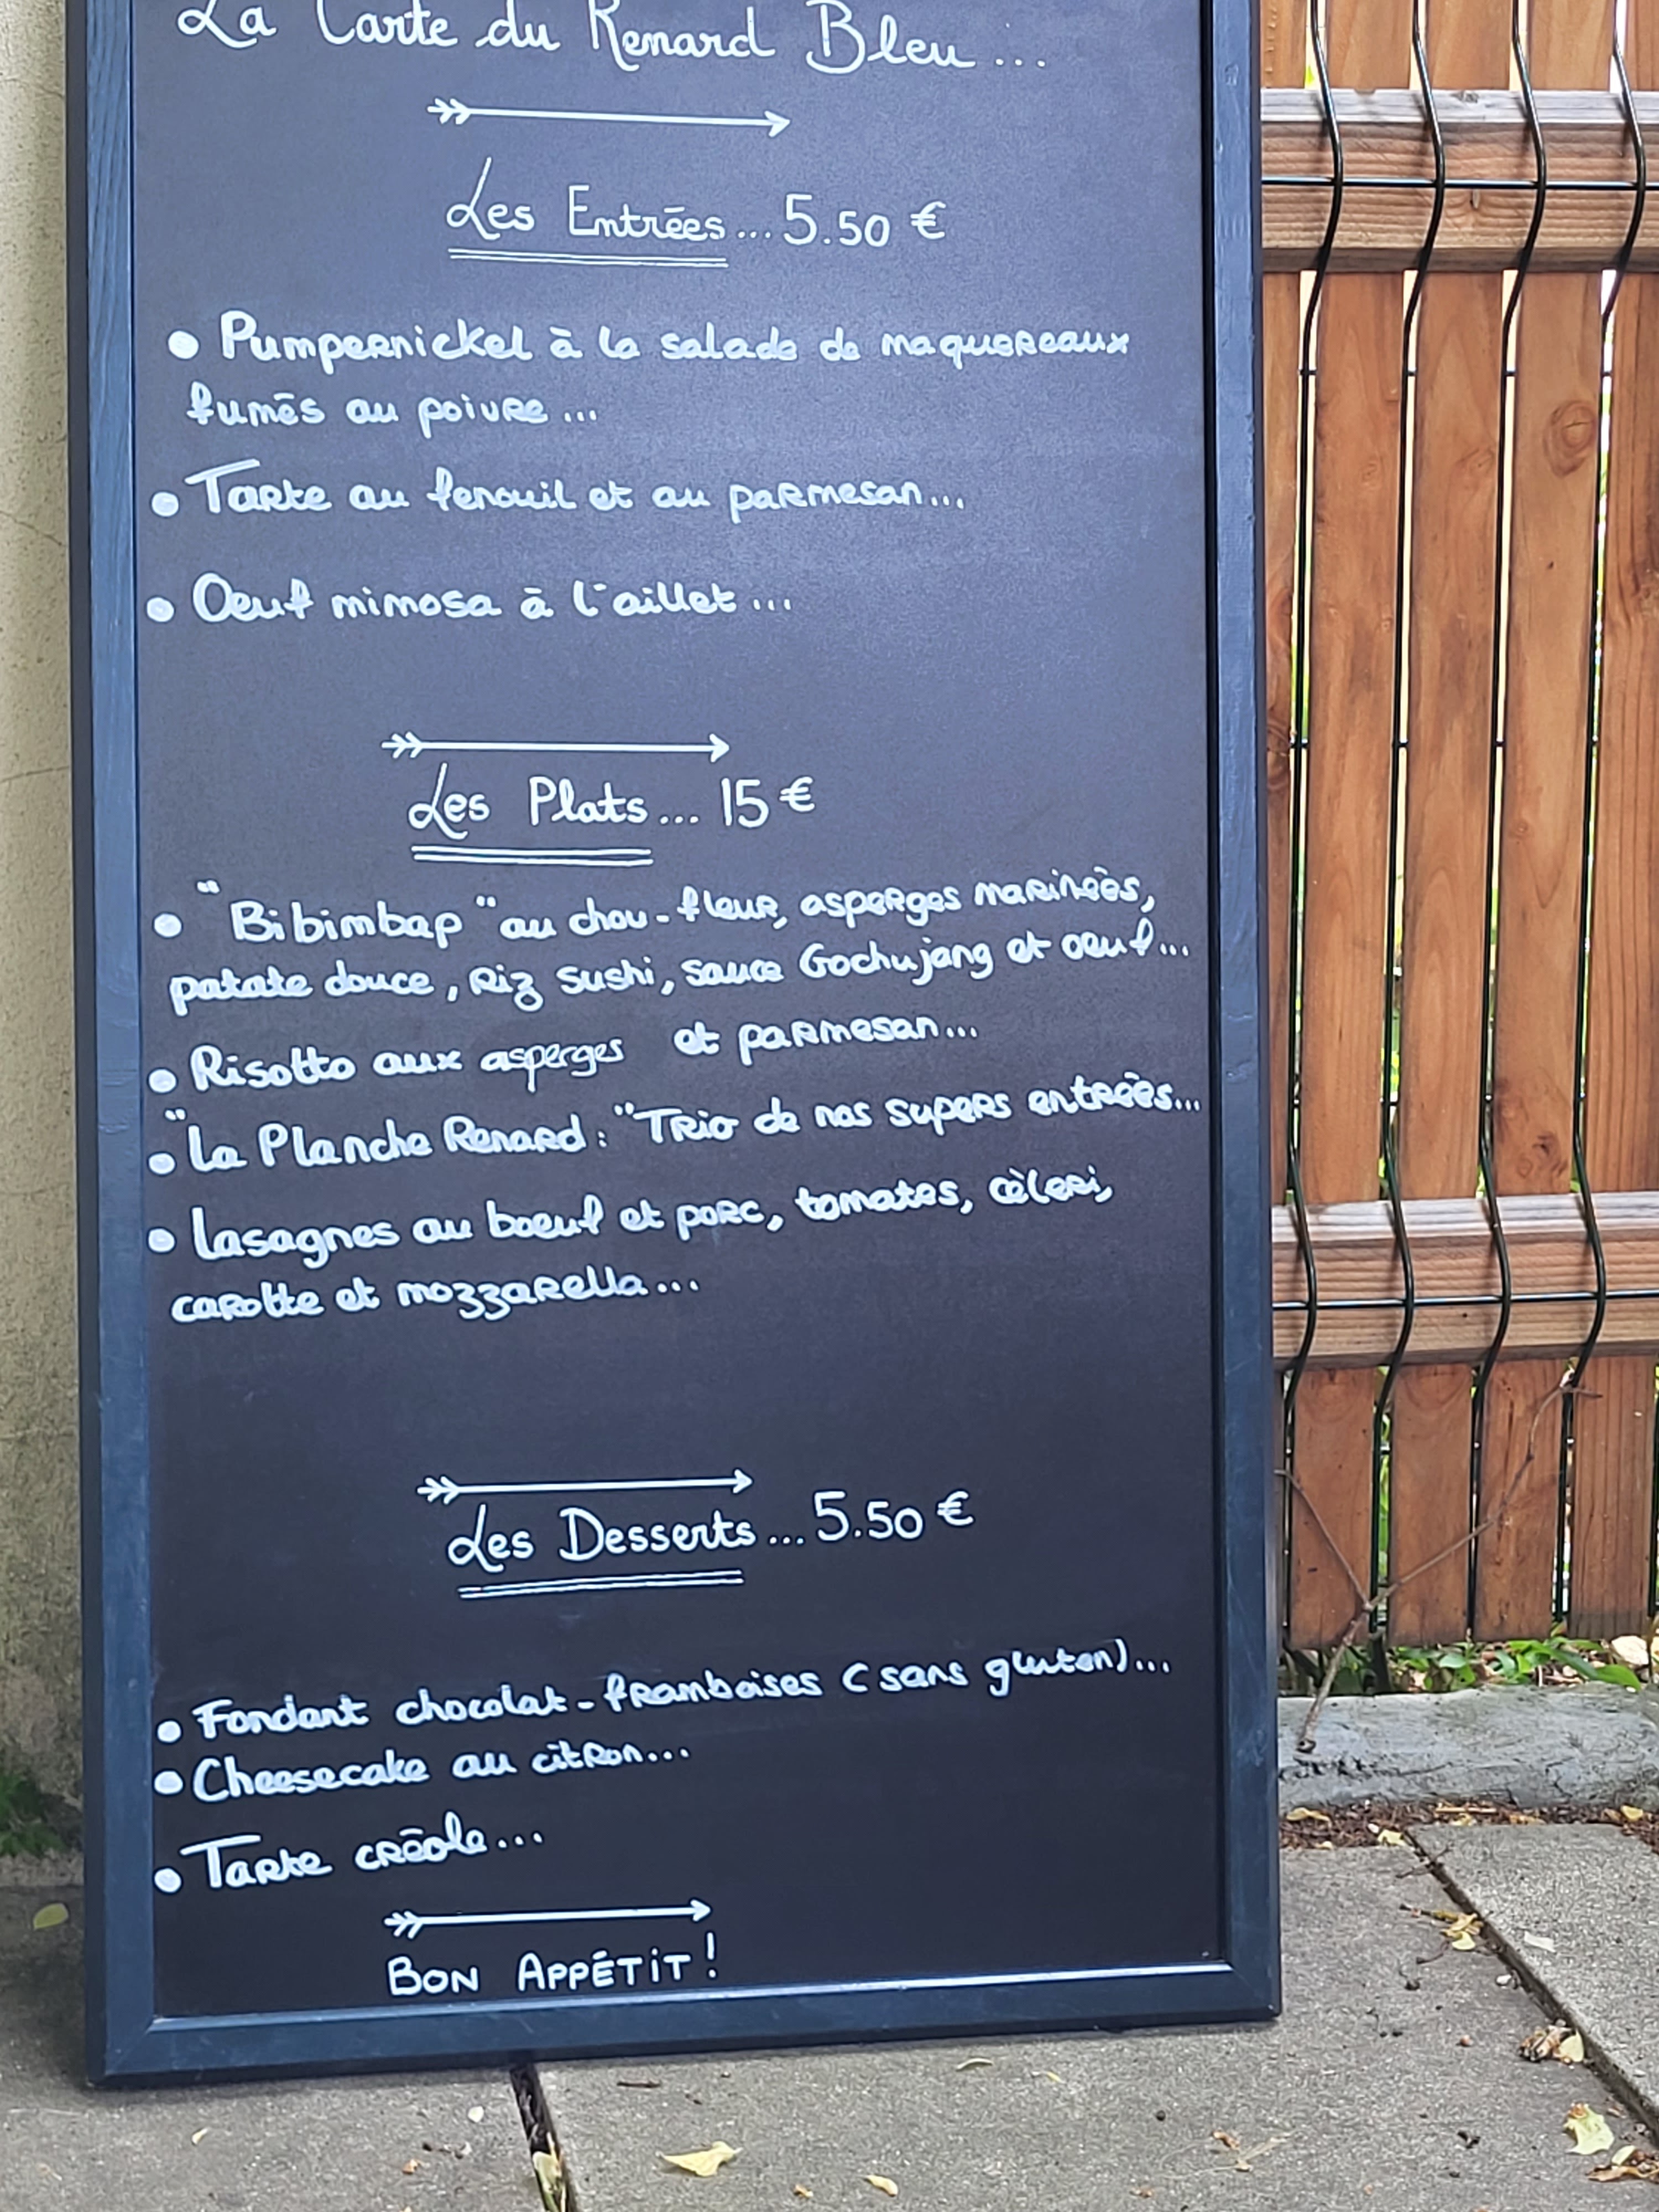 La Carte du Renard Bleu...
Les Entrées... 5.50 €
• Pumpernickel à la salade de maquereaux
fumés au poivre...
• Tarte au fenouil et au parmesan...
• Oeuf mimosa à l'aillet...
Les Plats... 15 €
• "Bibimbap" au chou-fleur, asperges marinées,
patate douce, riz sushi, sauce Gochujang et oeuf...
• Risotto aux asperges et parmesan...
• "La Planche Renard:" Trio de nos supers entrées...
• Lasagnes au boeuf et porc, tomates, cèleri,
carotte et mozzarella...
Les Desserts... 5.50 €
• Fondant chocolat-framboises (sans gluten)...
• Cheesecake au citron...
• Tarte créole...
BON APPÉTIT!